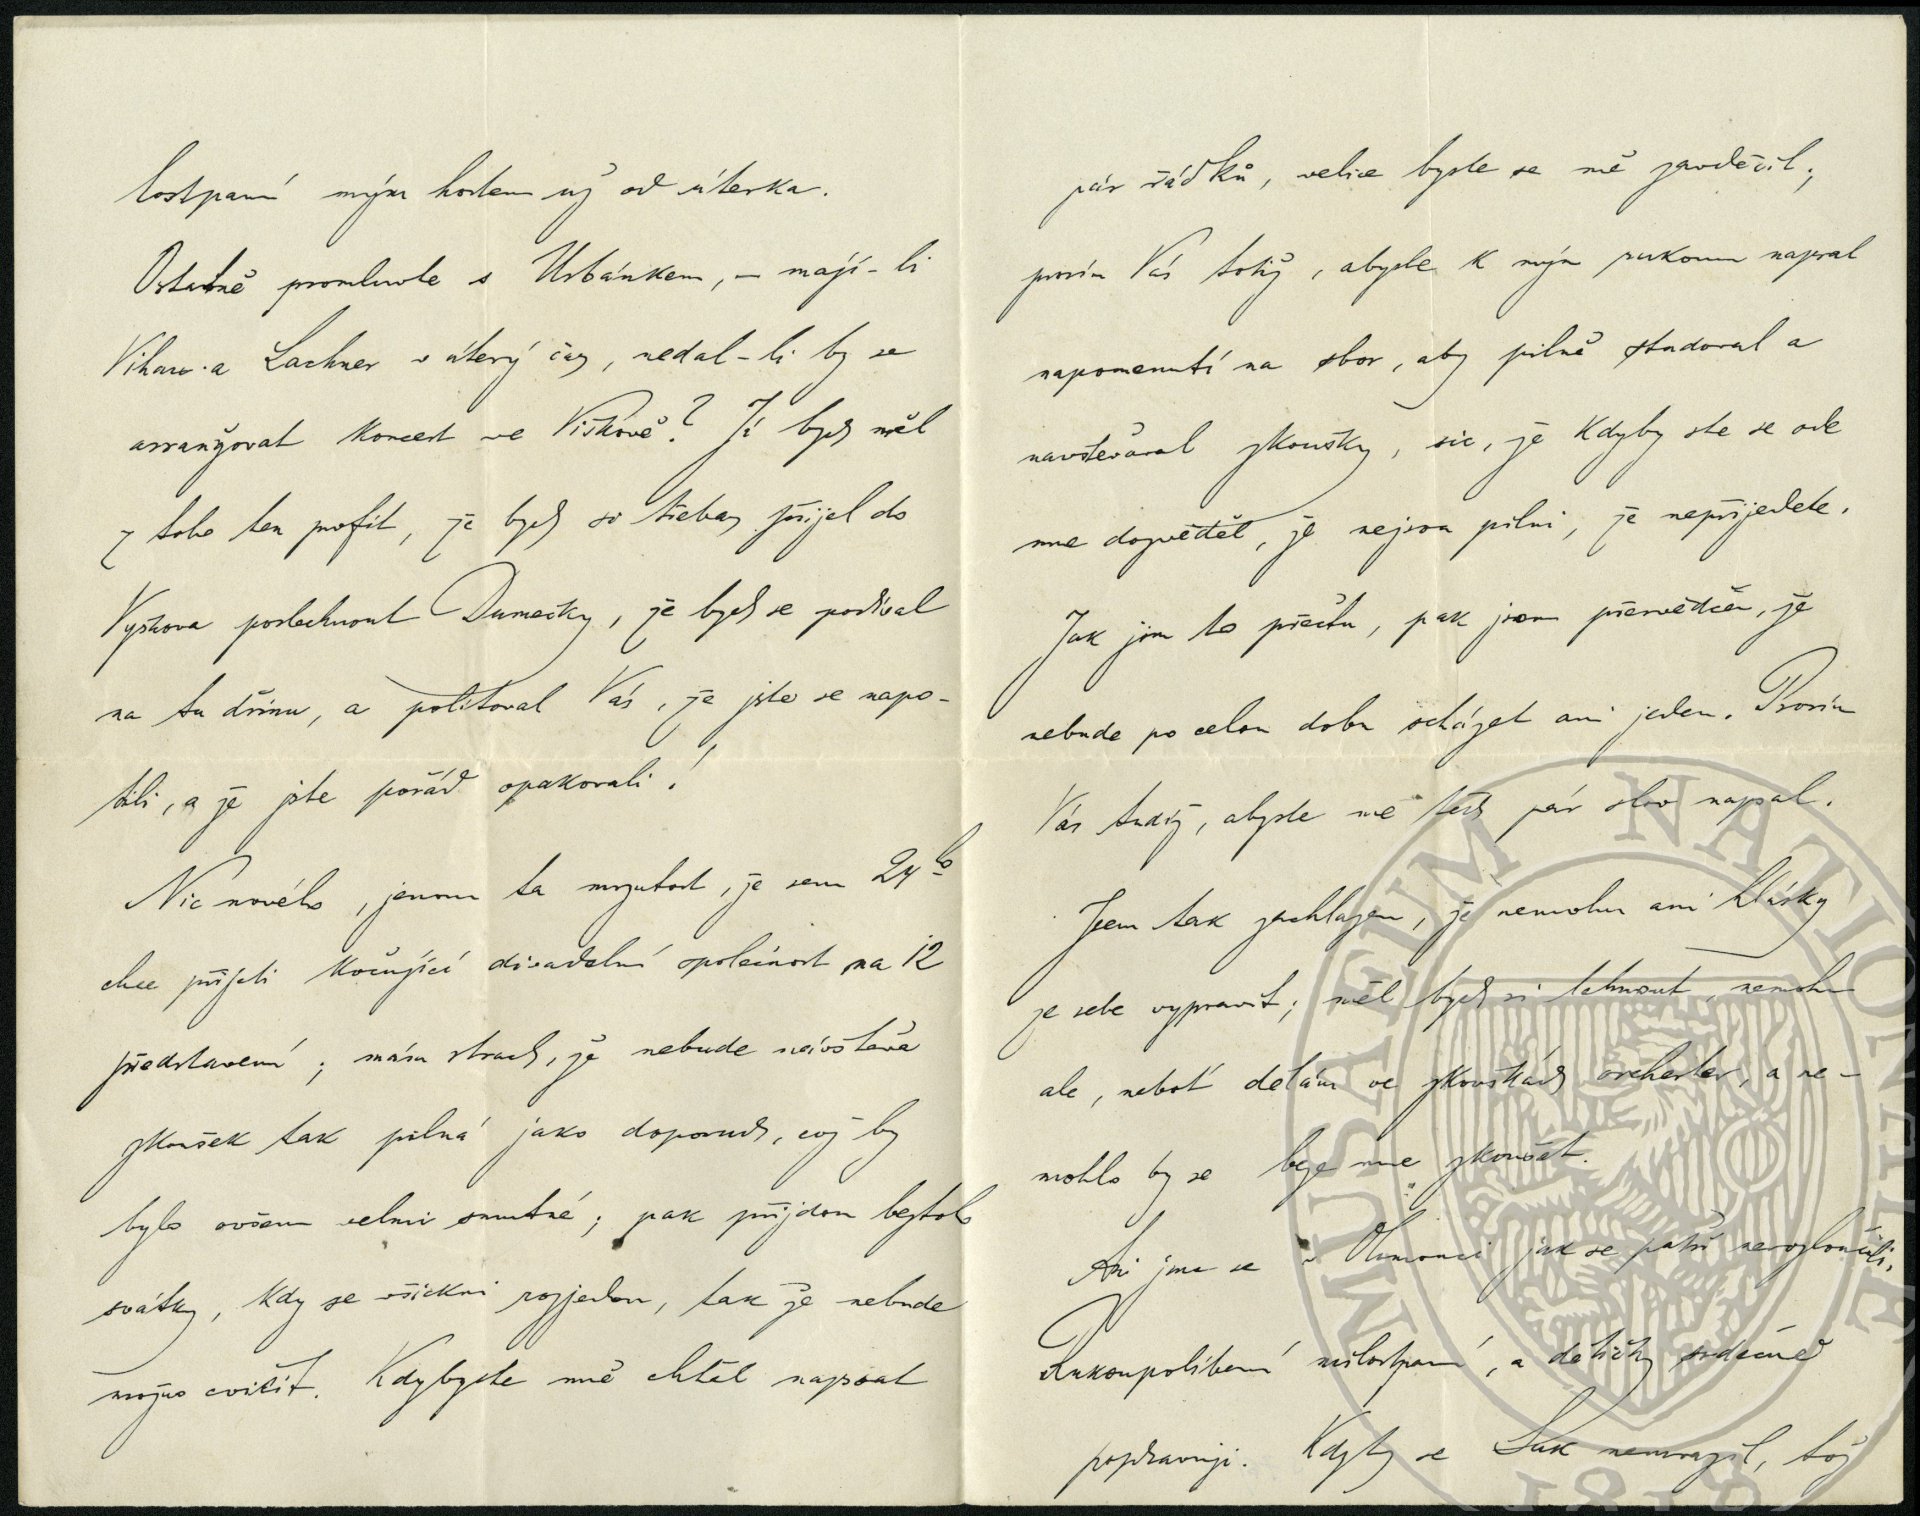 lostpaní mým hostem už od úterka.
Ostatně promluvte s Urbánkem, – mají-li
Vihan a Lachner v úterý čas, nedal-li by se
arranžovat koncert ve Viškově? Já bych měl
z toho ten profit, že bych si třebas přijel do
Vyškova poslechnout Dumečky, že bych se podíval
na tu dřinu, a politoval Vás, že jste se napo-
tili, a že jste pořád opakovali!
Nic nového, jenom ta mrzutost, že sem 24ho
chce přijeti kočující divadelní společnost na 12
představení; mám strach, že nebude návštěva
zkoušek tak pilná jako doposud, což by
bylo ovšem velmi smutné; pak přijdou beztoho
svátky, kdy se všickni rozjedou, tak že nebude
možno cvičit. Kdybyste mně chtěl napsat
pár řádků, velice byste se mě zavděčil;
prosím Vás totiž, abyste k mým rukoum napsal
napomenutí na sbor, aby pilně studoval a
navštěvoval zkoušky, sic, že kdyby ste se ode
mne dozvěděl, že nejsou pilni, že nepřijedete.
Jak jim to přečtu, pak jsem přesvědčen, že
nebude po celou dobu scházet ani jeden. Prosím
Vás tudíž, abyste mě těch pár slov napsal.
Jsem tak zachlazen, že nemohu ani hlásky
ze sebe vypravit; měl bych si lehnout, nemohu
ale, neboť dělám ve zkouškách orchester, a ne-
mohlo by se beze mne zkoušet.
Ani jsme se v Olomouci jak se patří nerozloučili.
Rukoupolíbení milostpaní, a dětičky srdečně
pozdravuji. Kdyby se Suk nemrazil, tož
MUSAEUM NATIONALE
1818